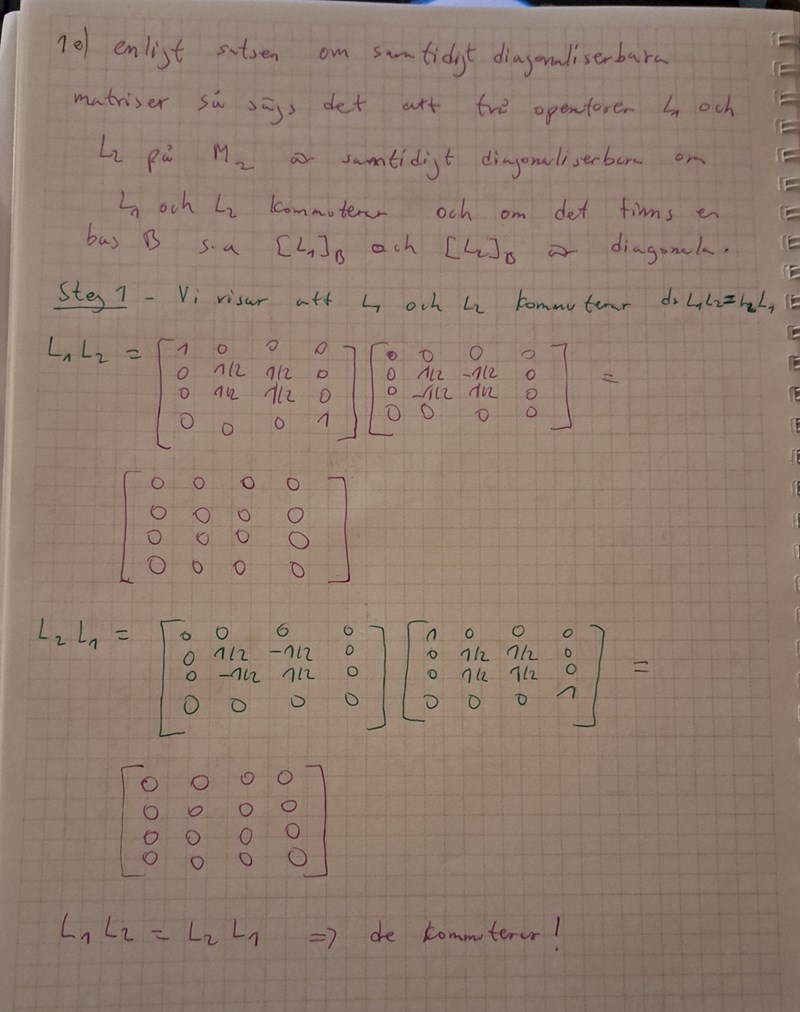 1e) enligt satsen om samtidigt diagonaliserbara
matriser så sägs det att två operatorer L₁ och
L₂ på M₂ är samtidigt diagonaliserbara om
L₁ och L₂ kommuterar och om det finns en
bas B s.a [L₁]_B och [L₂]_B är diagonala.
Steg 1 - Vi visar att L₁ och L₂ kommuterar då L₁L₂=L₂L₁
L₁L₂ = [1 0 0 0] [0 0 0 0]
[0 1/2 1/2 0] [0 1/2 -1/2 0] =
[0 1/2 1/2 0] [0 -1/2 1/2 0]
[0 0 0 1] [0 0 0 0]
[0 0 0 0]
[0 0 0 0]
[0 0 0 0]
[0 0 0 0]
L₂L₁ = [0 0 0 0] [1 0 0 0]
[0 1/2 -1/2 0] [0 1/2 1/2 0] =
[0 -1/2 1/2 0] [0 1/2 1/2 0]
[0 0 0 0] [0 0 0 1]
[0 0 0 0]
[0 0 0 0]
[0 0 0 0]
[0 0 0 0]
L₁L₂ = L₂L₁ => de kommuterar!